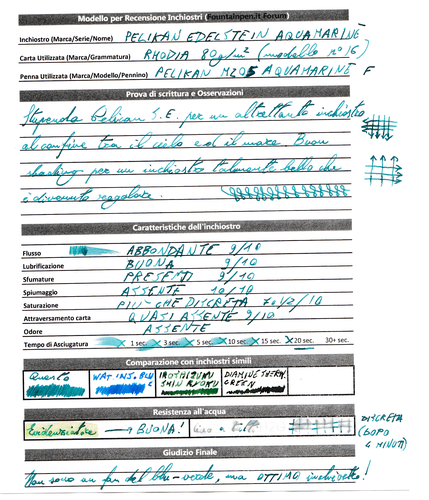 Modello per Recensione Inchiostri (Fountainpen.it Forum)
Inchiostro (Marca/Serie/Nome) PELIKAN EDELSTEIN AQUAMARINE
Carta Utilizzata (Marca/Grammatura) RHODIA 80g/m² (modello n°16)
Penna Utilizzata (Marca/Modello/Pennino) PELIKAN M205 AQUAMARINE F
Prova di scrittura e Osservazioni
Stupenda Pelican S.E. per un altrettanto inchiostro
al confine tra il cielo ed il mare. Buon
shading per un inchiostro talmente bello che
è divenuto regolare.
Caratteristiche dell'inchiostro
Flusso ABBONDANTE 9/10
Lubrificazione BUONA 9/10
Sfumature PRESENTI 9/10
Spiumaggio ASSENTE 10/10
Saturazione PIU' CHE DISCRETA 7 1/2/10
Attraversamento carta QUASI ASSENTE 9/10
Odore ASSENTE
Tempo di Asciugatura 1 sec. 3 sec. 5 sec. 10 sec. 15 sec. 20 sec. 30+ sec.
Comparazione con inchiostri simili
Questo WAT INS. BLUE IROSHIZUKU SHIN RYOKU DIAMINE SHERW. GREEN
Resistenza all'acqua
Evidenziatore → BUONA! DISCRETA
(DOPO
4 MINUTI)
Giudizio Finale
Non sono un fan del blu-verde, ma OTTIMO inchiostro!